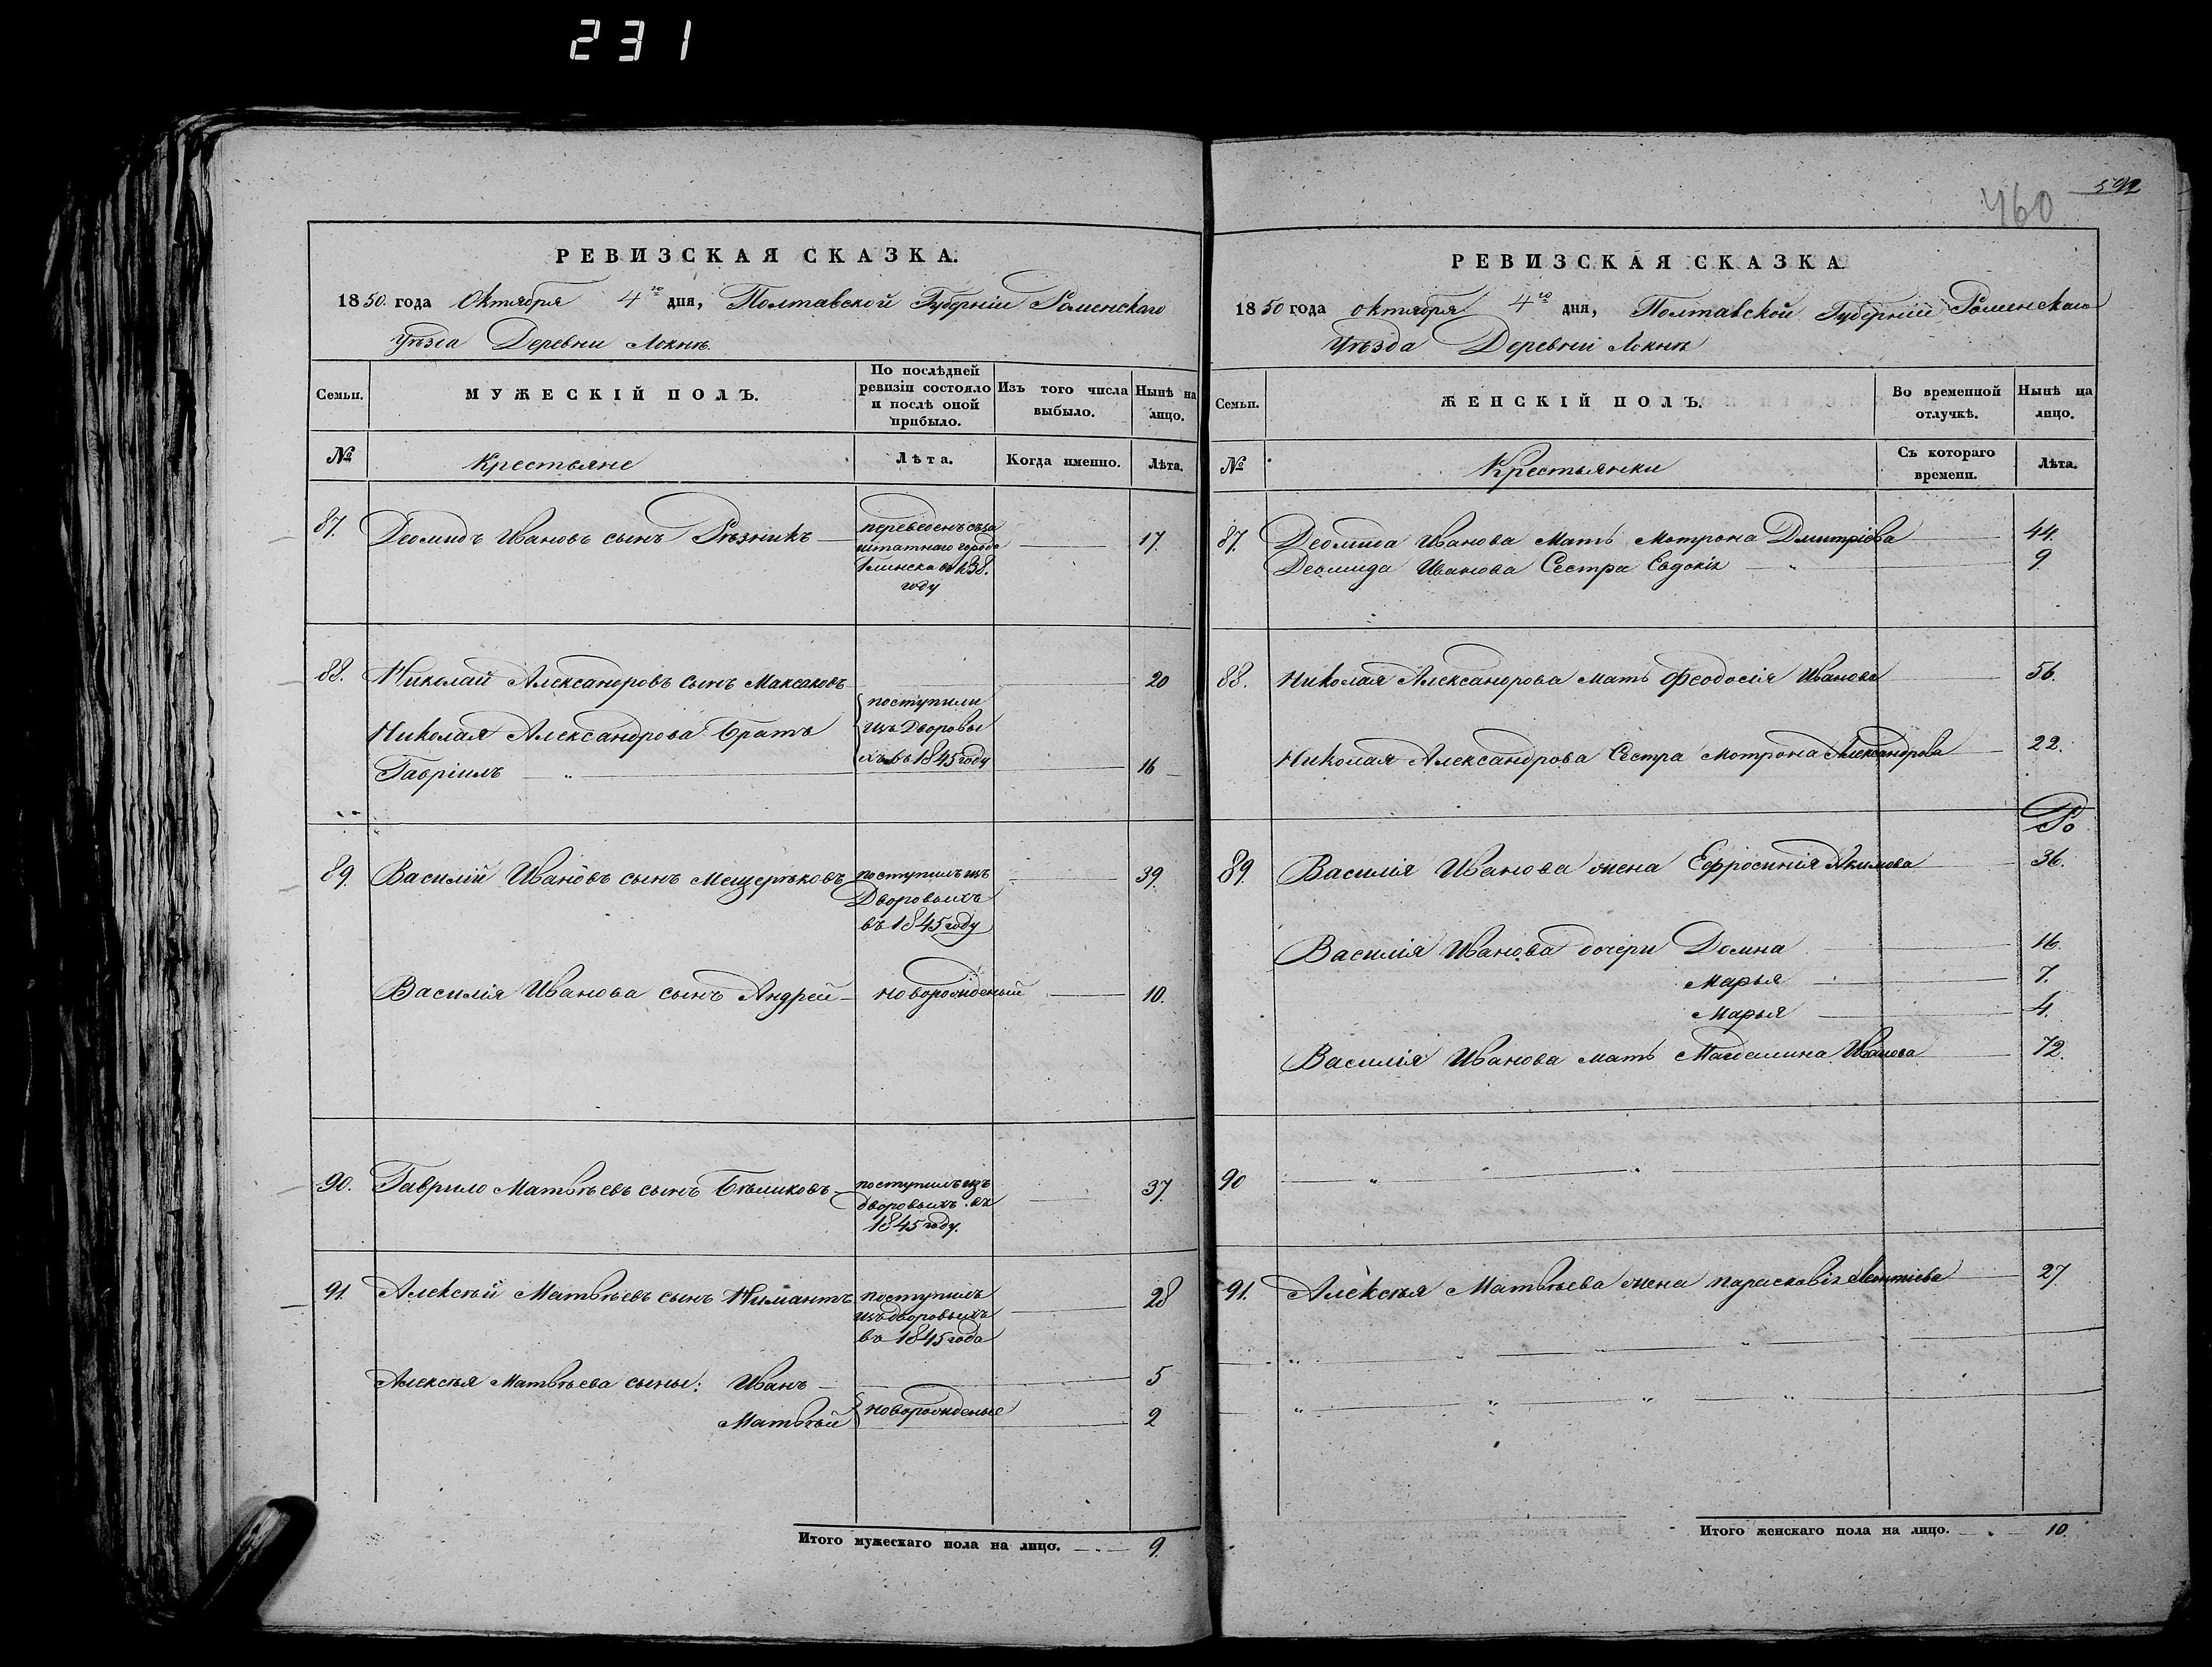 231
592
460
РЕВИЗСКАЯ СКАЗКА.
1850 года Октября 4го дня, Полтавской Губернiи Роменскаго
Уѣзда Деревни Локнѣ.
Семьи.
МУЖЕСКIЙ ПОЛЪ.
По послѣдней
ревизiи состояло
и послѣ оной
прибыло.
Изъ того числа
выбыло.
Нынѣ на
лицо.
№
Крестьяне
Лѣта.
Когда именно.
Лѣта.
87. Деомидъ Ивановъ сынъ Рѣзникъ
переведенъ съ за
штатнаго города
Глинска въ 1838.
году
17.
88. Николай Александровъ сынъ Максаковъ 20
Николая Александрова братъ
Гаврiилъ „ 16
поступили
изъ Дворовы
хъ въ 1845 году
89. Василiй Ивановъ сынъ Мещеряковъ
поступилъ изъ
Дворовыхъ
въ 1845 году
39.
Василiя Иванова сынъ Андрей новорожденый 10.
90. Гаврило Матвѣевъ сынъ Бѣликовъ
поступилъ изъ
дворовыхъ въ
1845 году.
37.
91. Алексѣй Матвѣевъ сынъ
поступилъ
изъ дворовыхъ
въ 1845 года
28
Алексѣя Матвѣева сыны: Иванъ 5
Матвѣй 2
новорожденые
Итого мужескаго пола на лицо. 9.
РЕВИЗСКАЯ СКАЗКА.
1850 года октября 4го дня, Полтавской Губернiи Роменскаго
Уѣзда Деревнi Локнѣ
Семьи.
ЖЕНСКIЙ ПОЛЪ.
Во временной
отлучкѣ.
Нынѣ на
лицо.
№
Крестьянки
Съ котораго
времени.
Лѣта.
87. Деомида Иванова Мать Мотрона Дмитрiева 44.
Деомида Иванова Сестра Евдокiя 9.
88. Николая Александрова мать Феодосiя Иванова 56.
Николая Александрова Сестра Мотрона Александрова 22.
89. Василiя Иванова жена Ефросинiя Якимова 36.
Василiя Иванова дочери Домна 16.
Марья 7.
Марья 4.
Василiя Иванова мать Магдалина Иванова 72.
90 „ „
91. Алексѣя Матвѣева жена Парасковiя Леонтiева 27
Итого женскаго пола на лицо. 10.